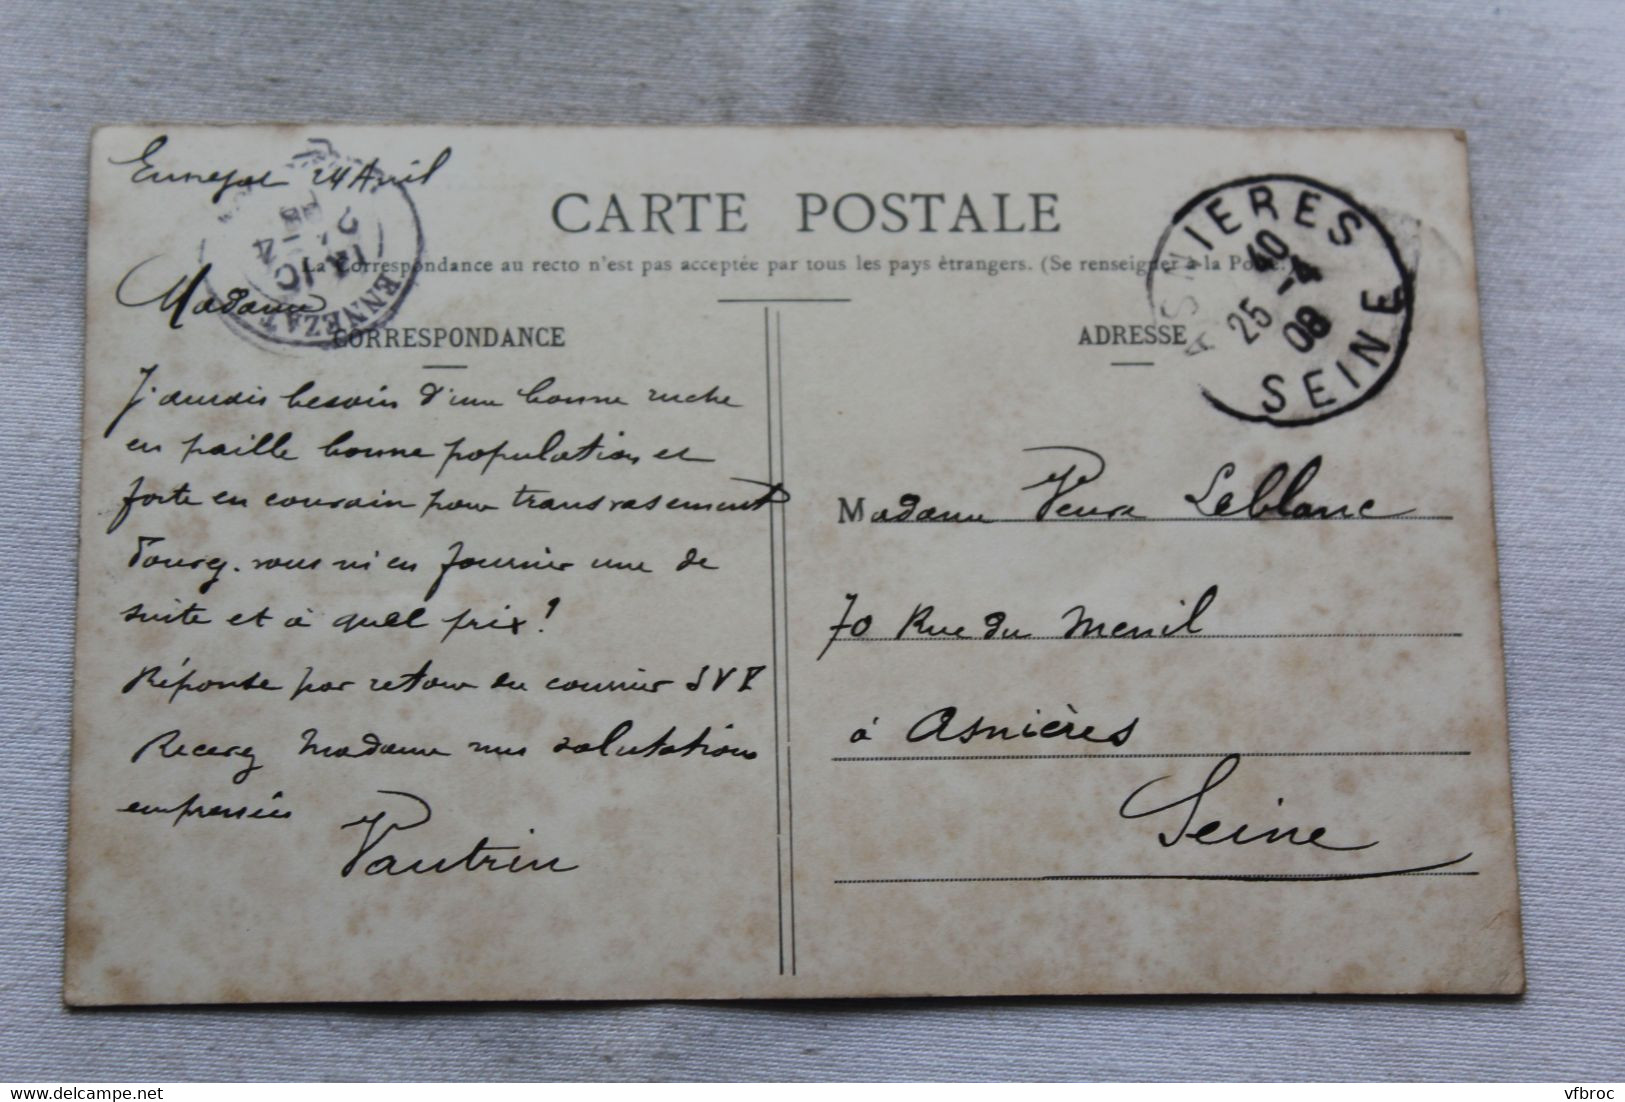 Ennezat 24 Avril
CARTE POSTALE
La Correspondance au recto n'est pas acceptée par tous les pays étrangers. (Se renseigner à la Poste.
Madame
CORRESPONDANCE
J'aurais besoin d'une bonne ruche
en paille bonne population et
forte en couvain pour transvasement
Pourez-vous m'en fournir une de
suite et à quel prix?
Réponse par retour du courrier SVP
Recevez Madame mes salutations
empressées
Vautrin
ENNEZAT
ADRESSE
ASNIERES
40
25 -4
08
SEINE
Madame Veuve Leblanc
70 Rue du Menil
à Asnières
Seine
vfbroc